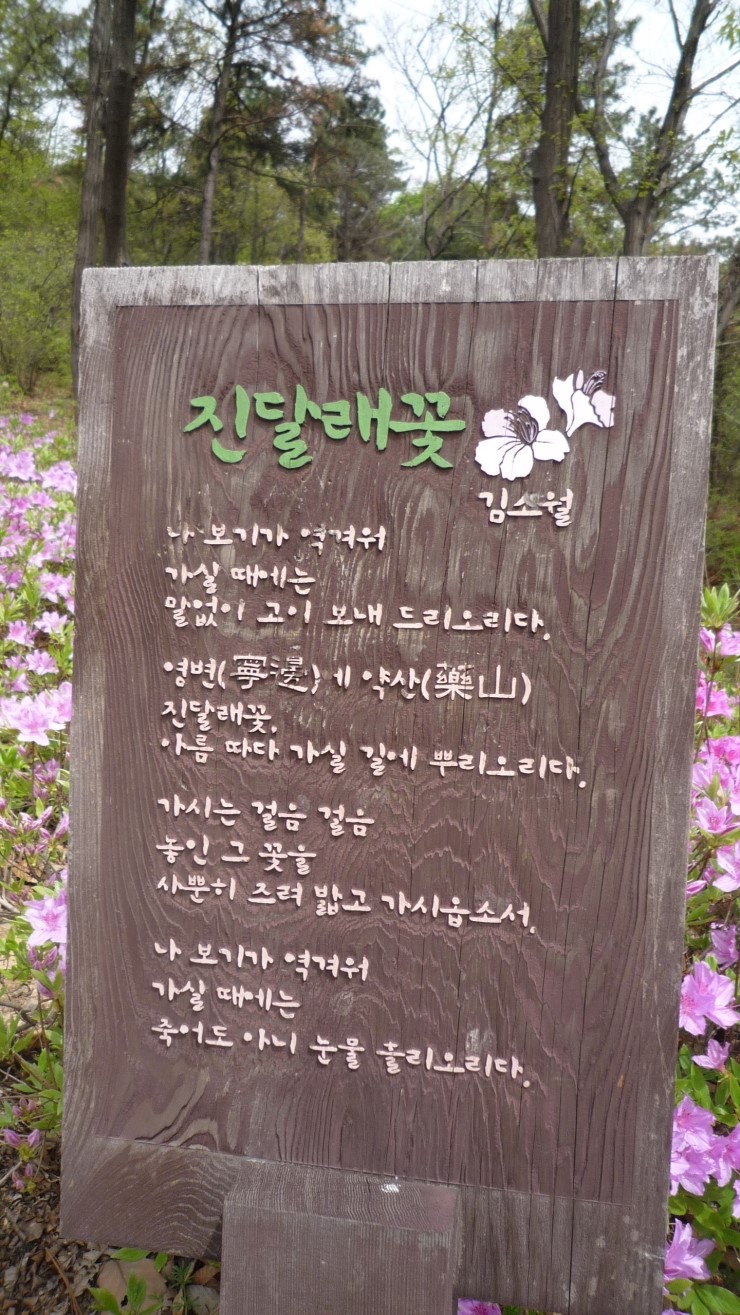 진달래꽃
김소월
나 보기가 역겨워
가실 때에는
말없이 고이 보내 드리오리다.
영변(寧邊)에 약산(藥山)
진달래꽃,
아름 따다 가실 길에 뿌리오리다.
가시는 걸음 걸음
놓인 그 꽃을
사뿐히 즈려 밟고 가시옵소서.
나 보기가 역겨워
가실 때에는
죽어도 아니 눈물 흘리오리다.